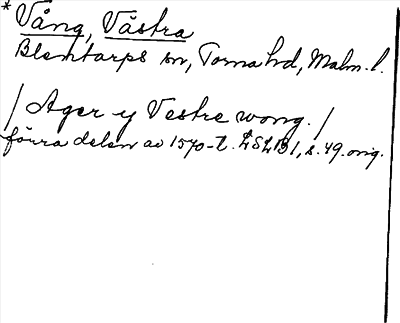 * Vång, Västra
Blentarps sn, Torna hd, Malm. l.
/ Ager y Vestre wong. /
förra delen av 1570-t. LSLB1, s. 49. orig.